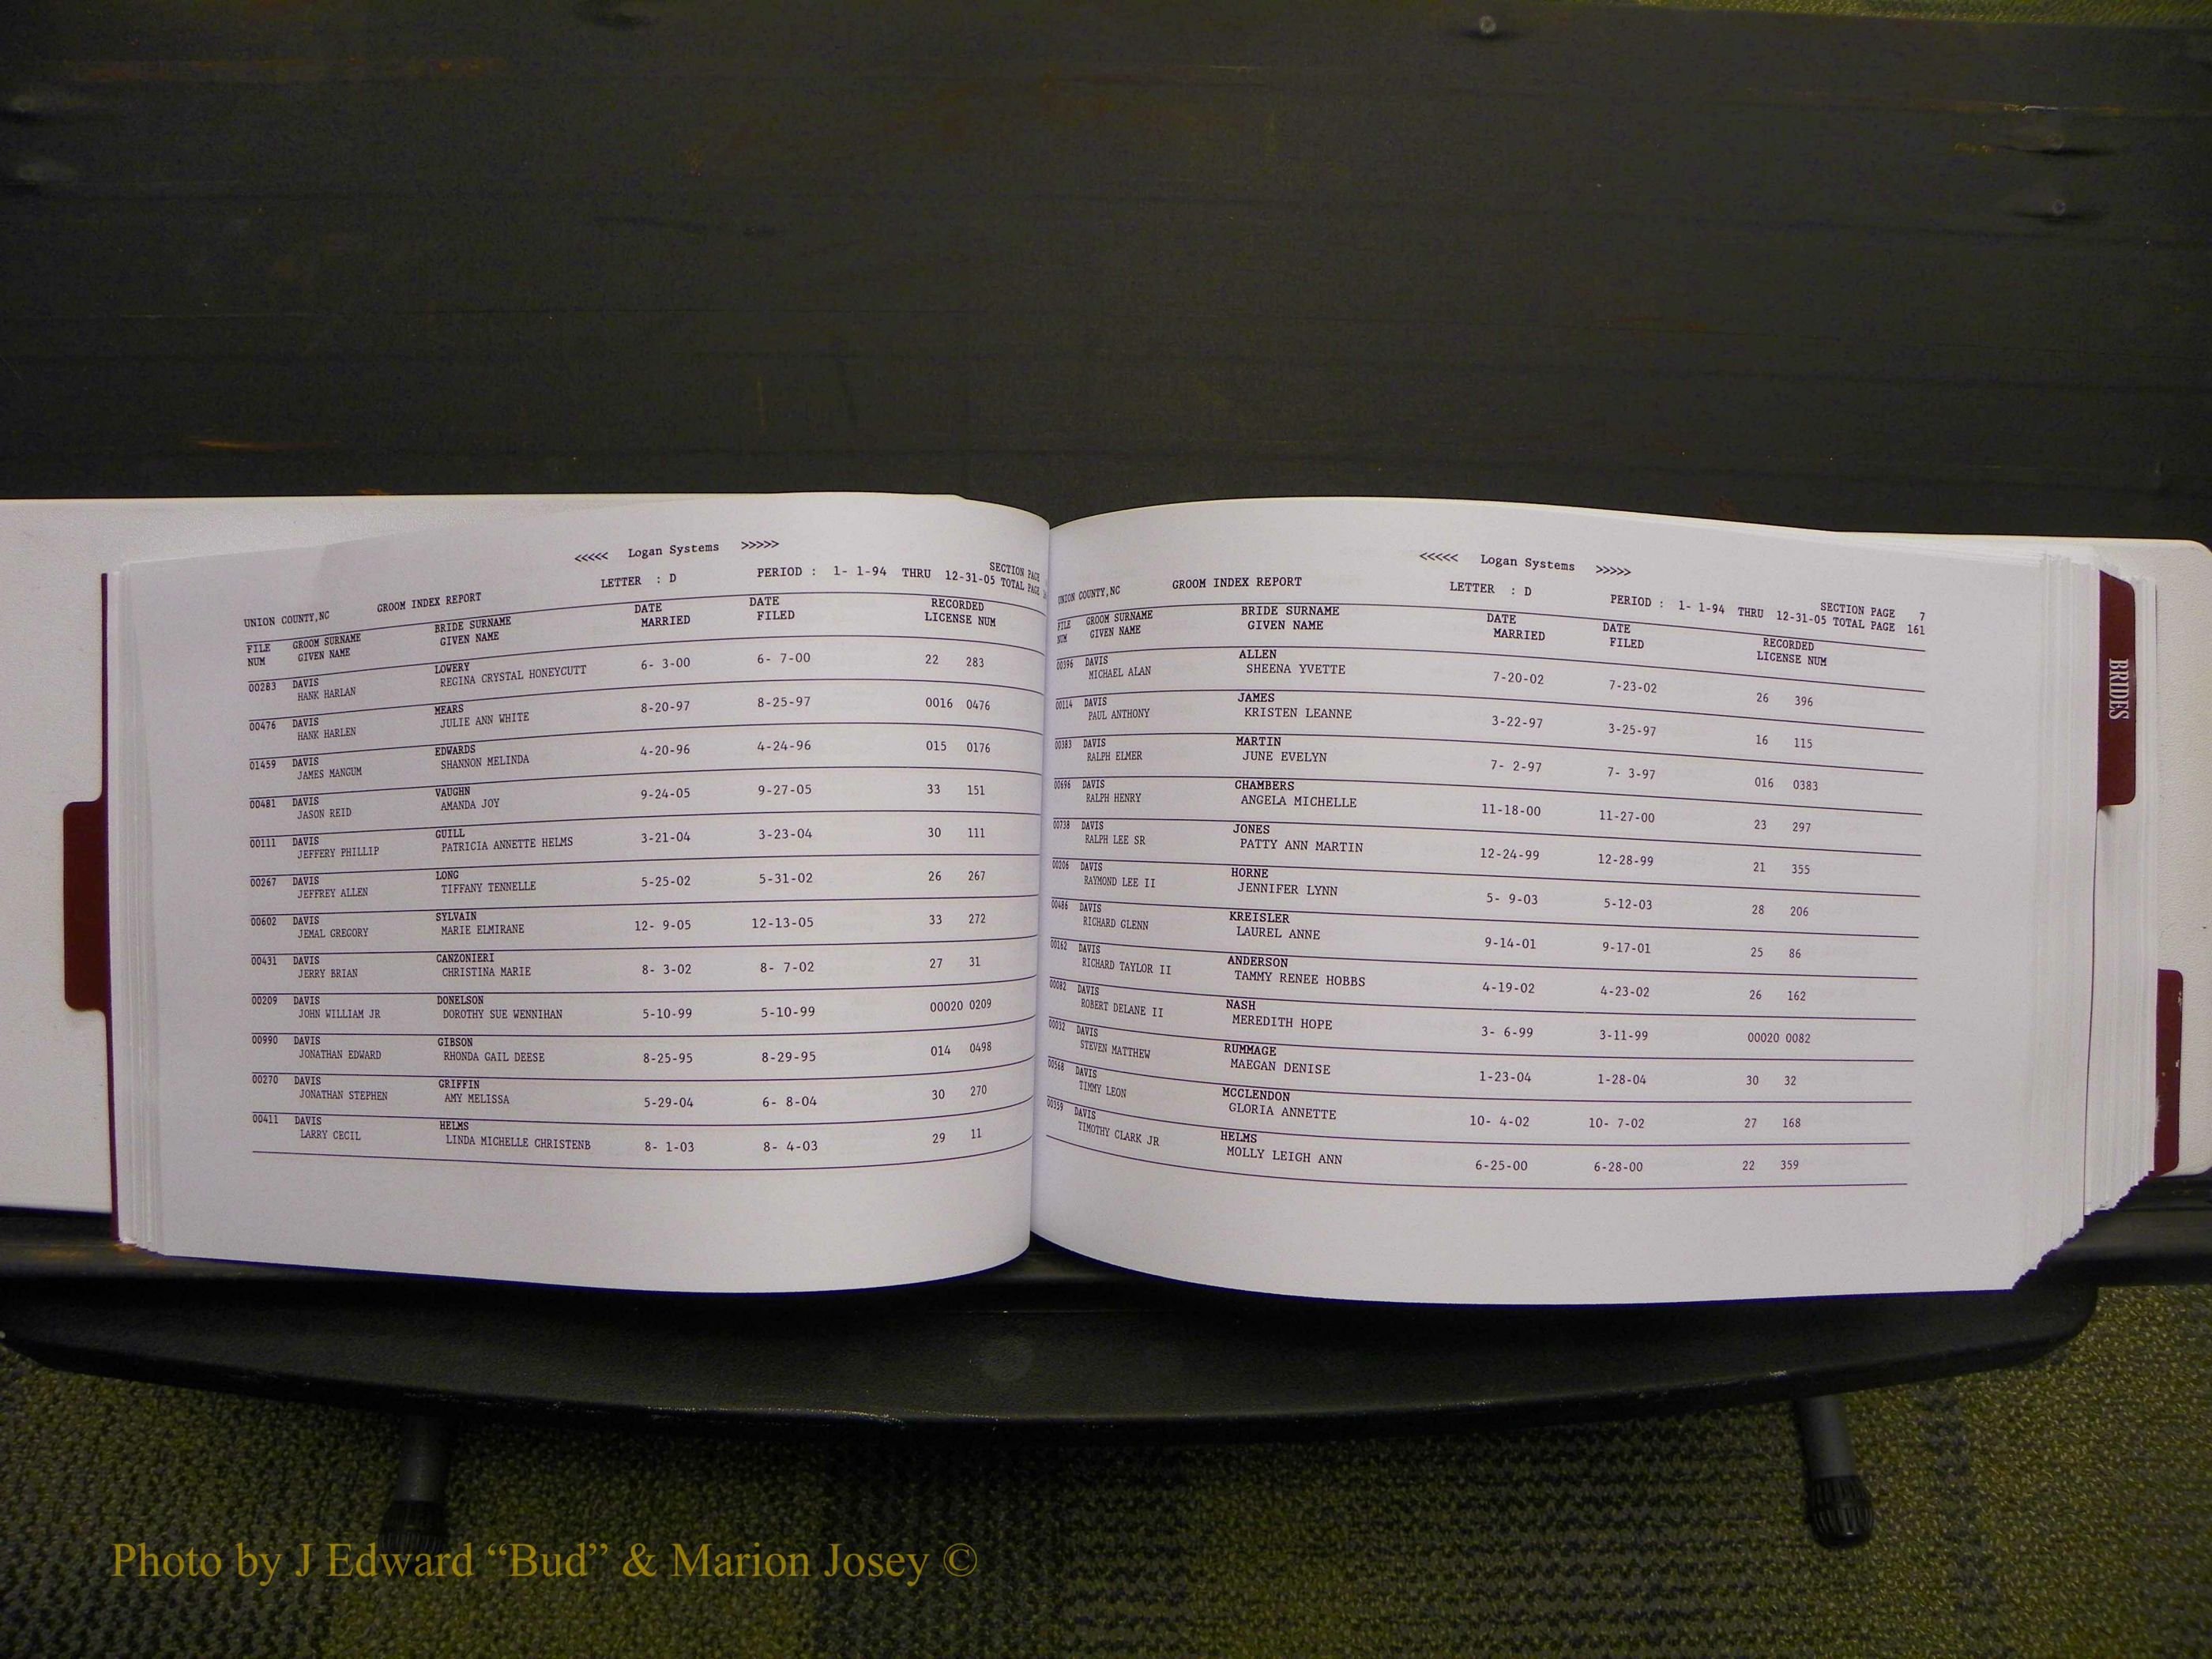 <<<<< Logan Systems >>>>>
UNION COUNTY,NC GROOM INDEX REPORT LETTER : D PERIOD : 1- 1-94 THRU 12-31-05 SECTION PAGE
TOTAL PAGE
FILE GROOM SURNAME BRIDE SURNAME DATE DATE RECORDED
NUM GIVEN NAME GIVEN NAME MARRIED FILED LICENSE NUM
00283 DAVIS LOWERY 6- 3-00 6- 7-00 22 283
HANK HARLAN REGINA CRYSTAL HONEYCUTT
00476 DAVIS MEARS 8-20-97 8-25-97 0016 0476
HANK HARLEN JULIE ANN WHITE
01459 DAVIS EDWARDS 4-20-96 4-24-96 015 0176
JAMES MANGUM SHANNON MELINDA
00481 DAVIS VAUGHN 9-24-05 9-27-05 33 151
JASON REID AMANDA JOY
00111 DAVIS GUILL 3-21-04 3-23-04 30 111
JEFFERY PHILLIP PATRICIA ANNETTE HELMS
00267 DAVIS LONG 5-25-02 5-31-02 26 267
JEFFREY ALLEN TIFFANY TENNELLE
00602 DAVIS SYLVAIN 12- 9-05 12-13-05 33 272
JEMAL GREGORY MARIE ELMIRANE
00431 DAVIS CANZONIERI 8- 3-02 8- 7-02 27 31
JERRY BRIAN CHRISTINA MARIE
00209 DAVIS DONELSON 5-10-99 5-10-99 00020 0209
JOHN WILLIAM JR DOROTHY SUE WENNIHAN
00990 DAVIS GIBSON 8-25-95 8-29-95 014 0498
JONATHAN EDWARD RHONDA GAIL DEESE
00270 DAVIS GRIFFIN 5-29-04 6- 8-04 30 270
JONATHAN STEPHEN AMY MELISSA
00411 DAVIS HELMS 8- 1-03 8- 4-03 29 11
LARRY CECIL LINDA MICHELLE CHRISTENB
<<<<< Logan Systems >>>>>
UNION COUNTY,NC GROOM INDEX REPORT LETTER : D PERIOD : 1- 1-94 THRU 12-31-05 SECTION PAGE 7
TOTAL PAGE 161
FILE GROOM SURNAME BRIDE SURNAME DATE DATE RECORDED
NUM GIVEN NAME GIVEN NAME MARRIED FILED LICENSE NUM
00396 DAVIS ALLEN 7-20-02 7-23-02 26 396
MICHAEL ALAN SHEENA YVETTE
00114 DAVIS JAMES 3-22-97 3-25-97 16 115
PAUL ANTHONY KRISTEN LEANNE
00383 DAVIS MARTIN 7- 2-97 7- 3-97 016 0383
RALPH ELMER JUNE EVELYN
00696 DAVIS CHAMBERS 11-18-00 11-27-00 23 297
RALPH HENRY ANGELA MICHELLE
00738 DAVIS JONES 12-24-99 12-28-99 21 355
RALPH LEE SR PATTY ANN MARTIN
00206 DAVIS HORNE 5- 9-03 5-12-03 28 206
RAYMOND LEE II JENNIFER LYNN
00486 DAVIS KREISLER 9-14-01 9-17-01 25 86
RICHARD GLENN LAUREL ANNE
00162 DAVIS ANDERSON 4-19-02 4-23-02 26 162
RICHARD TAYLOR II TAMMY RENEE HOBBS
00082 DAVIS NASH 3- 6-99 3-11-99 00020 0082
ROBERT DELANE II MEREDITH HOPE
00032 DAVIS RUMMAGE 1-23-04 1-28-04 30 32
STEVEN MATTHEW MAEGAN DENISE
00568 DAVIS MCCLENDON 10- 4-02 10- 7-02 27 168
TIMMY LEON GLORIA ANNETTE
00359 DAVIS HELMS 6-25-00 6-28-00 22 359
TIMOTHY CLARK JR MOLLY LEIGH ANN
BRIDES
Photo by J Edward “Bud” & Marion Josey ©